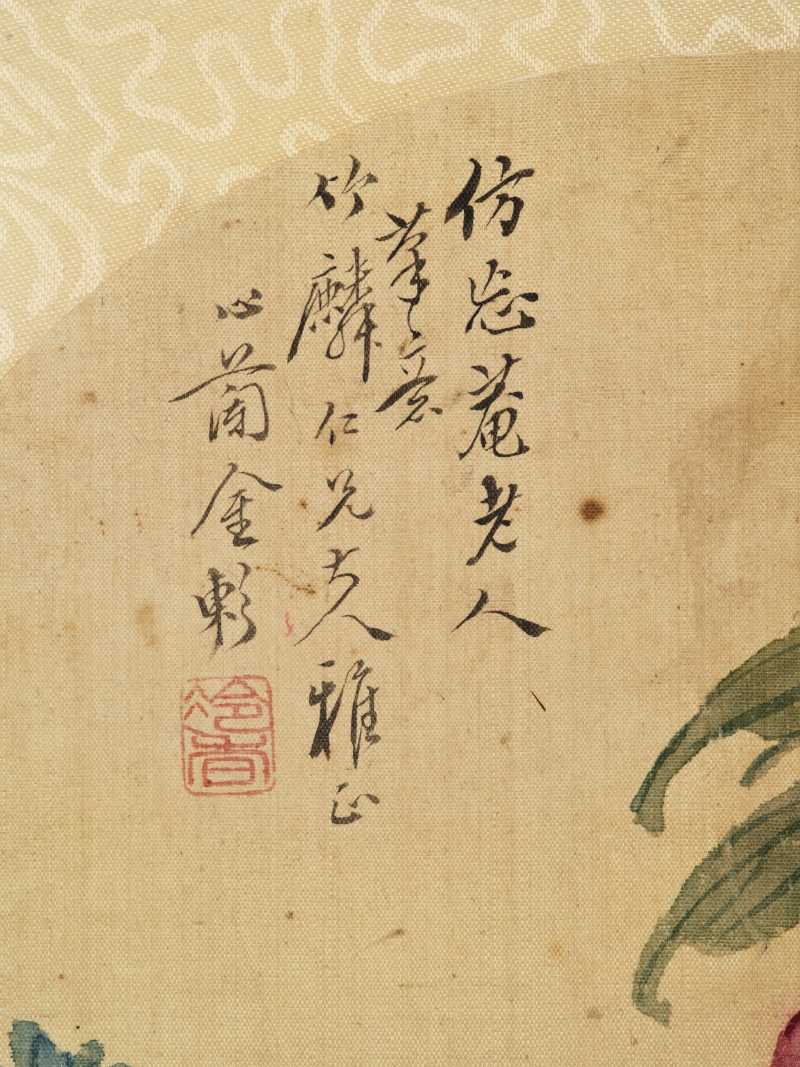 仿忘菴老人
筆意
竹麟仁兄大人雅正
心蘭金𣂏